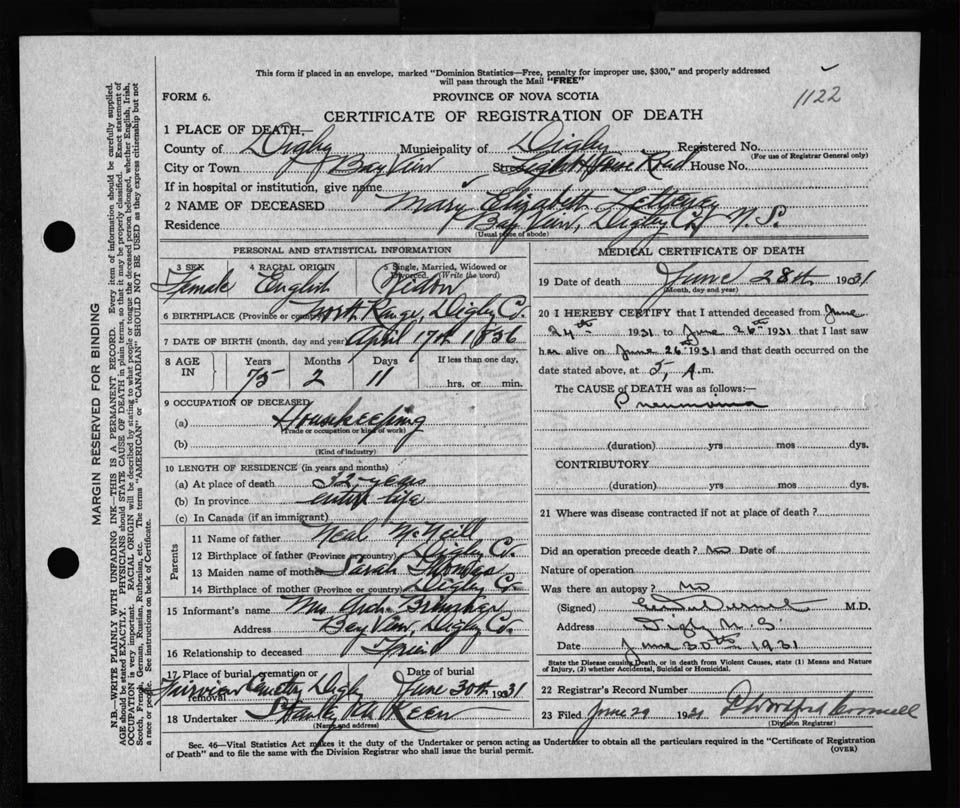 This form if placed in an envelope, marked "Dominion Statistics—Free, penalty for improper use, $300," and properly addressed
will pass through the Mail "FREE"
1122
FORM 6.
PROVINCE OF NOVA SCOTIA
CERTIFICATE OF REGISTRATION OF DEATH
1 PLACE OF DEATH,—
County of Digby Municipality of Digby Registered No.
(For use of Registrar General only)
City or Town Bay View Street Road House No.
If in hospital or institution, give name
2 NAME OF DECEASED Mary Elizabeth
Residence Bay View, Digby Co. N. S.
(Usual place of abode)
PERSONAL AND STATISTICAL INFORMATION
3 SEX 4 RACIAL ORIGIN 5 Single, Married, Widowed or Divorced. (Write the word)
Female English Widow
6 BIRTHPLACE (Province or country) North Range, Digby Co.
7 DATE OF BIRTH (month, day and year) April 17th 1856
8 AGE IN Years Months Days If less than one day,
75 2 11 hrs. or min.
9 OCCUPATION OF DECEASED
(a) Housekeeping
(Trade or occupation or kind of work)
(b)
(Kind of industry)
10 LENGTH OF RESIDENCE (in years and months)
(a) At place of death years
(b) In province entire life
(c) In Canada (if an immigrant)
Parents
11 Name of father Neal McNeill
12 Birthplace of father (Province or country) Digby Co.
13 Maiden name of mother Sarah Thomas
14 Birthplace of mother (Province or country) Digby Co.
15 Informant's name Mrs Arch.
Address Bay View, Digby Co.
16 Relationship to deceased
17 Place of burial, cremation or removal Date of burial
Fairview Cemetery Digby June 30th 1931
18 Undertaker
(Name and address)
MEDICAL CERTIFICATE OF DEATH
19 Date of death June 28th 1931
(Month, day and year)
20 I HEREBY CERTIFY that I attended deceased from June
24th 1931 to June 26th 1931 that I last saw
her alive on June 26th 1931 and that death occurred on the
date stated above, at 5, A.m.
The CAUSE of DEATH was as follows:—
Pneumonia
(duration) yrs mos dys.
CONTRIBUTORY
(duration) yrs mos dys.
21 Where was disease contracted if not at place of death?
Did an operation precede death? no Date of
Nature of operation
Was there an autopsy? no
(Signed) M.D.
Address Digby N. S.
Date June 30th 1931
State the Disease causing Death, or in death from Violent Causes, state (1) Means and Nature
of Injury, (2) whether Accidental, Suicidal or Homicidal.
22 Registrar's Record Number
23 Filed June 29 1931
(Division Registrar)
Sec. 46—Vital Statistics Act makes it the duty of the Undertaker or person acting as Undertaker to obtain all the particulars required in the "Certificate of Registration
of Death" and to file the same with the Division Registrar who shall issue the burial permit.
(OVER)
MARGIN RESERVED FOR BINDING
N.B.—WRITE PLAINLY WITH UNFADING INK—THIS IS A PERMANENT RECORD. Every item of information should be carefully supplied.
AGE should be stated EXACTLY. PHYSICIANS should STATE CAUSE OF DEATH in plain terms, so that it may be properly classified. Exact statement of
OCCUPATION is very important. RACIAL ORIGIN will be described by stating to what people or tongue the deceased person belonged, whether English, Irish,
Scotch, French, German, Russian, Ruthenian, etc. The terms "AMERICAN" or "CANADIAN" SHOULD NOT BE USED as they express citizenship but not
a race or people. See instructions on back of Certificate.